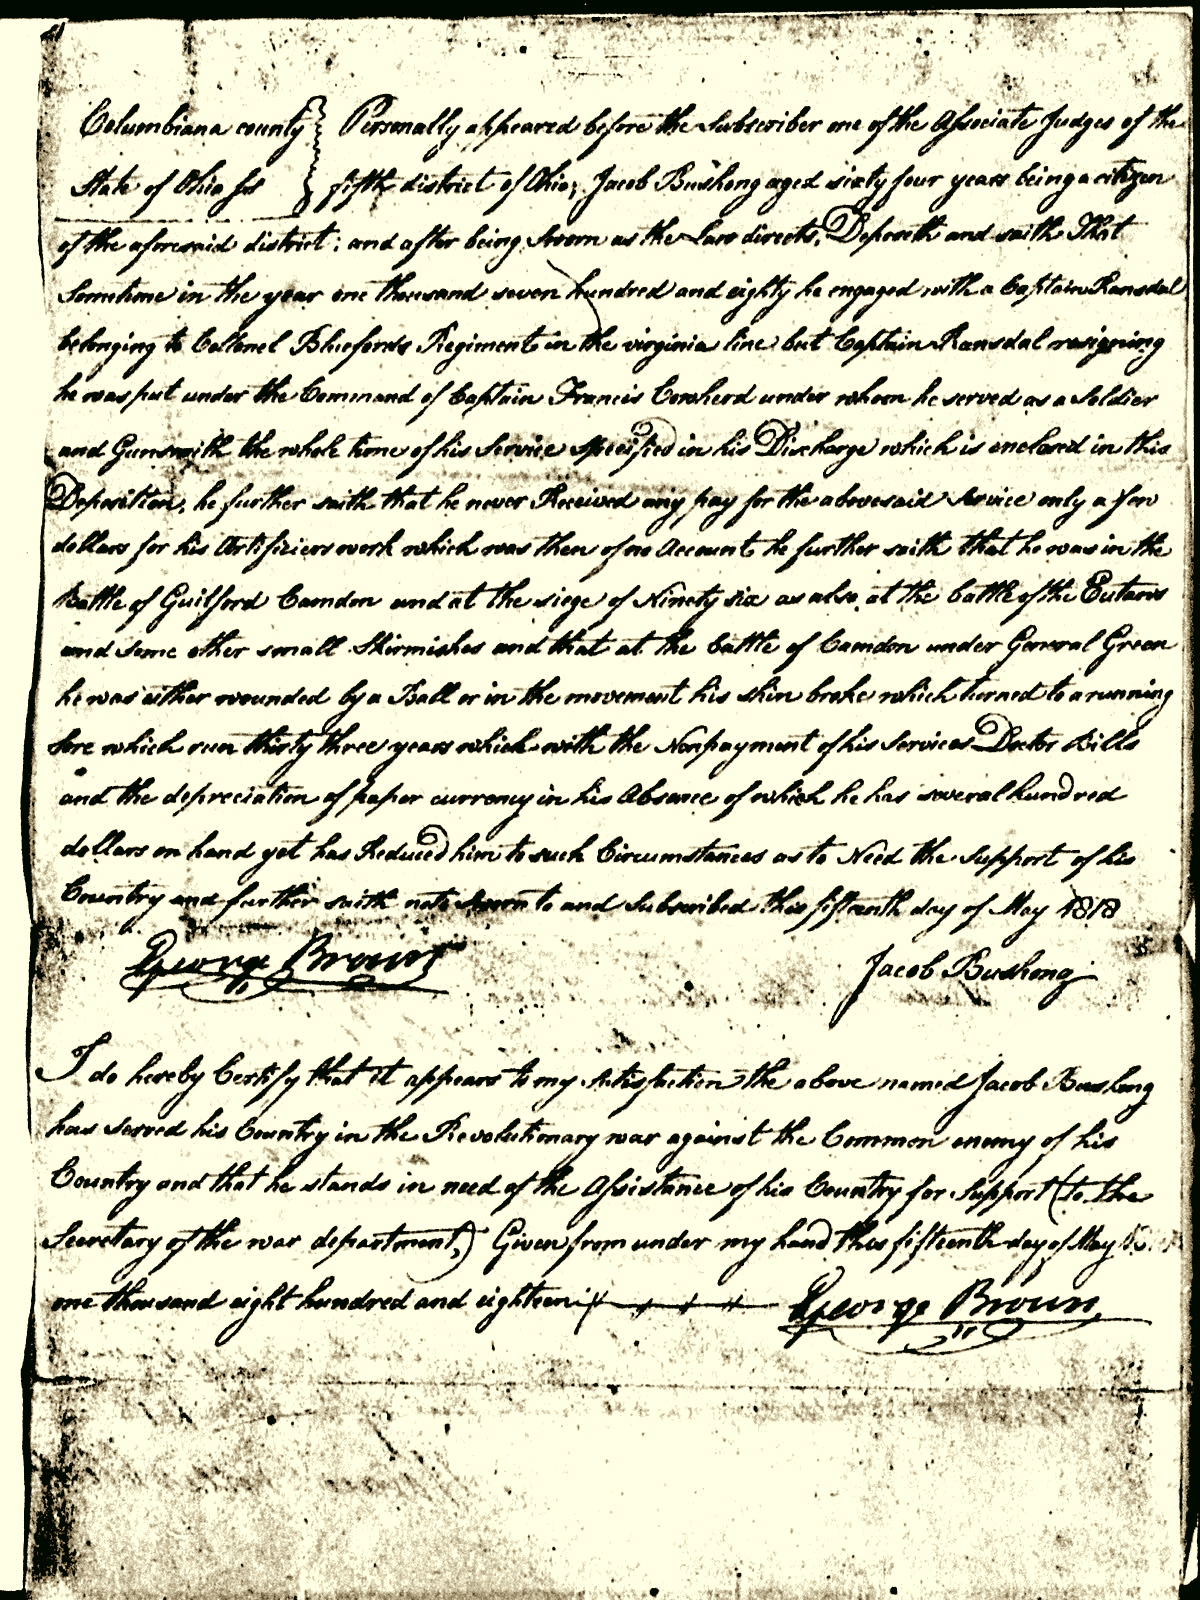 Columbiana county } Personally appeared before the Subscriber one of the Associate Judges of the
State of Ohio ss } fifth district of Ohio; Jacob Bushong aged sixty four years being a citizen
of the aforesaid district; and after being Sworn as the Law directs, Deposeth and saith That
Sometime in the year one thousand seven hundred and eighty he engaged with a Captain Ransdal
belonging to Collonel Bluefords Regiment in the virginia line but Captain Ransdal resigning
he was put under the Command of Captain Francis Cowherd under whom he served as a Soldier
and Gunsmith the whole time of his Service Specified in his Discharge which is enclosed in this
Deposition, he further saith that he never Received any pay for the abovesaid Service only a few
dollars for his Artifiziers work which was then of no Account he further saith that he was in the
Battle of Guilford Camdon and at the siege of Ninety six as also at the battle of the Eutaws
and Some other small Skirmishes and that at the battle of Camdon under General Green
he was either wounded by a Ball or in the movement his shin broke which turned to a running
Sore which run thirty three years which with the Nonpayment of his Services Doctor Bills
and the depreciation of paper currency in his Absence of which he has several hundred
dollars on hand yet has Reduced him to such Circumstances as to Need the Support of his
Country and further saith not Sworn to and Subscribed this fifteenth day of May 1818
George Brown Jacob Bushong
I do hereby Certify that it appears to my Satisfaction the above named Jacob Bushong
has Served his Country in the Revolutionary war against the Common enemy of his
Country and that he stands in need of the Assistance of his Country for Support (to the
Secretary of the war department,) Given from under my hand this fifteenth day of May
one thousand eight hundred and eighteen George Brown